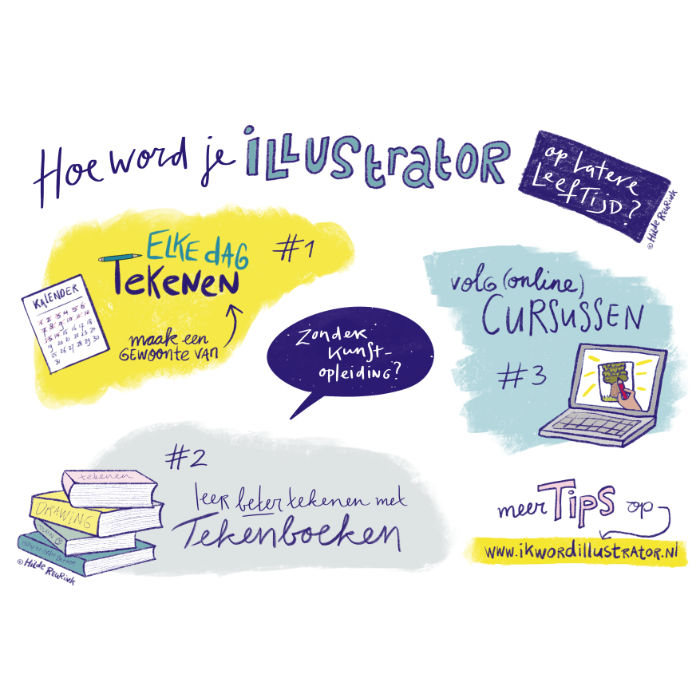 Hoe word je illustrator
op latere
leeftijd?
© Hilde Reurink
Elke dag
Tekenen
#1
maak een
gewoonte van
KALENDER
Zonder
kunst-
opleiding?
#2
leer beter tekenen met
Tekenboeken
tekenen
DRAWING
© Hilde Reurink
volg (online)
CURSUSSEN
#3
meer Tips op
www.ikwordillustrator.nl